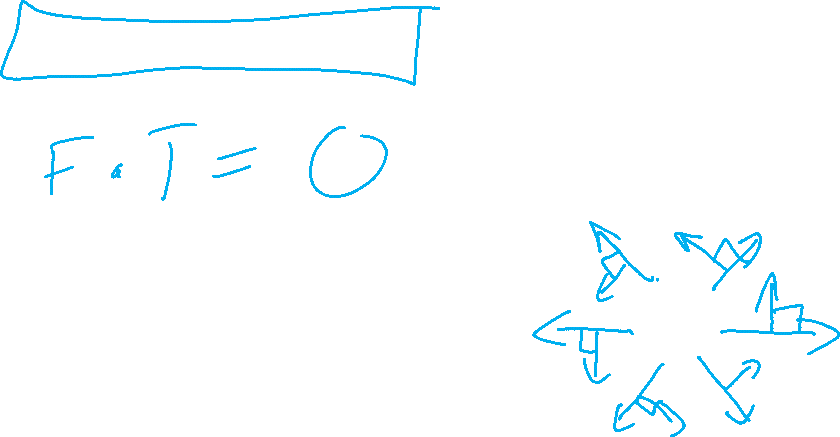 F · T = 0